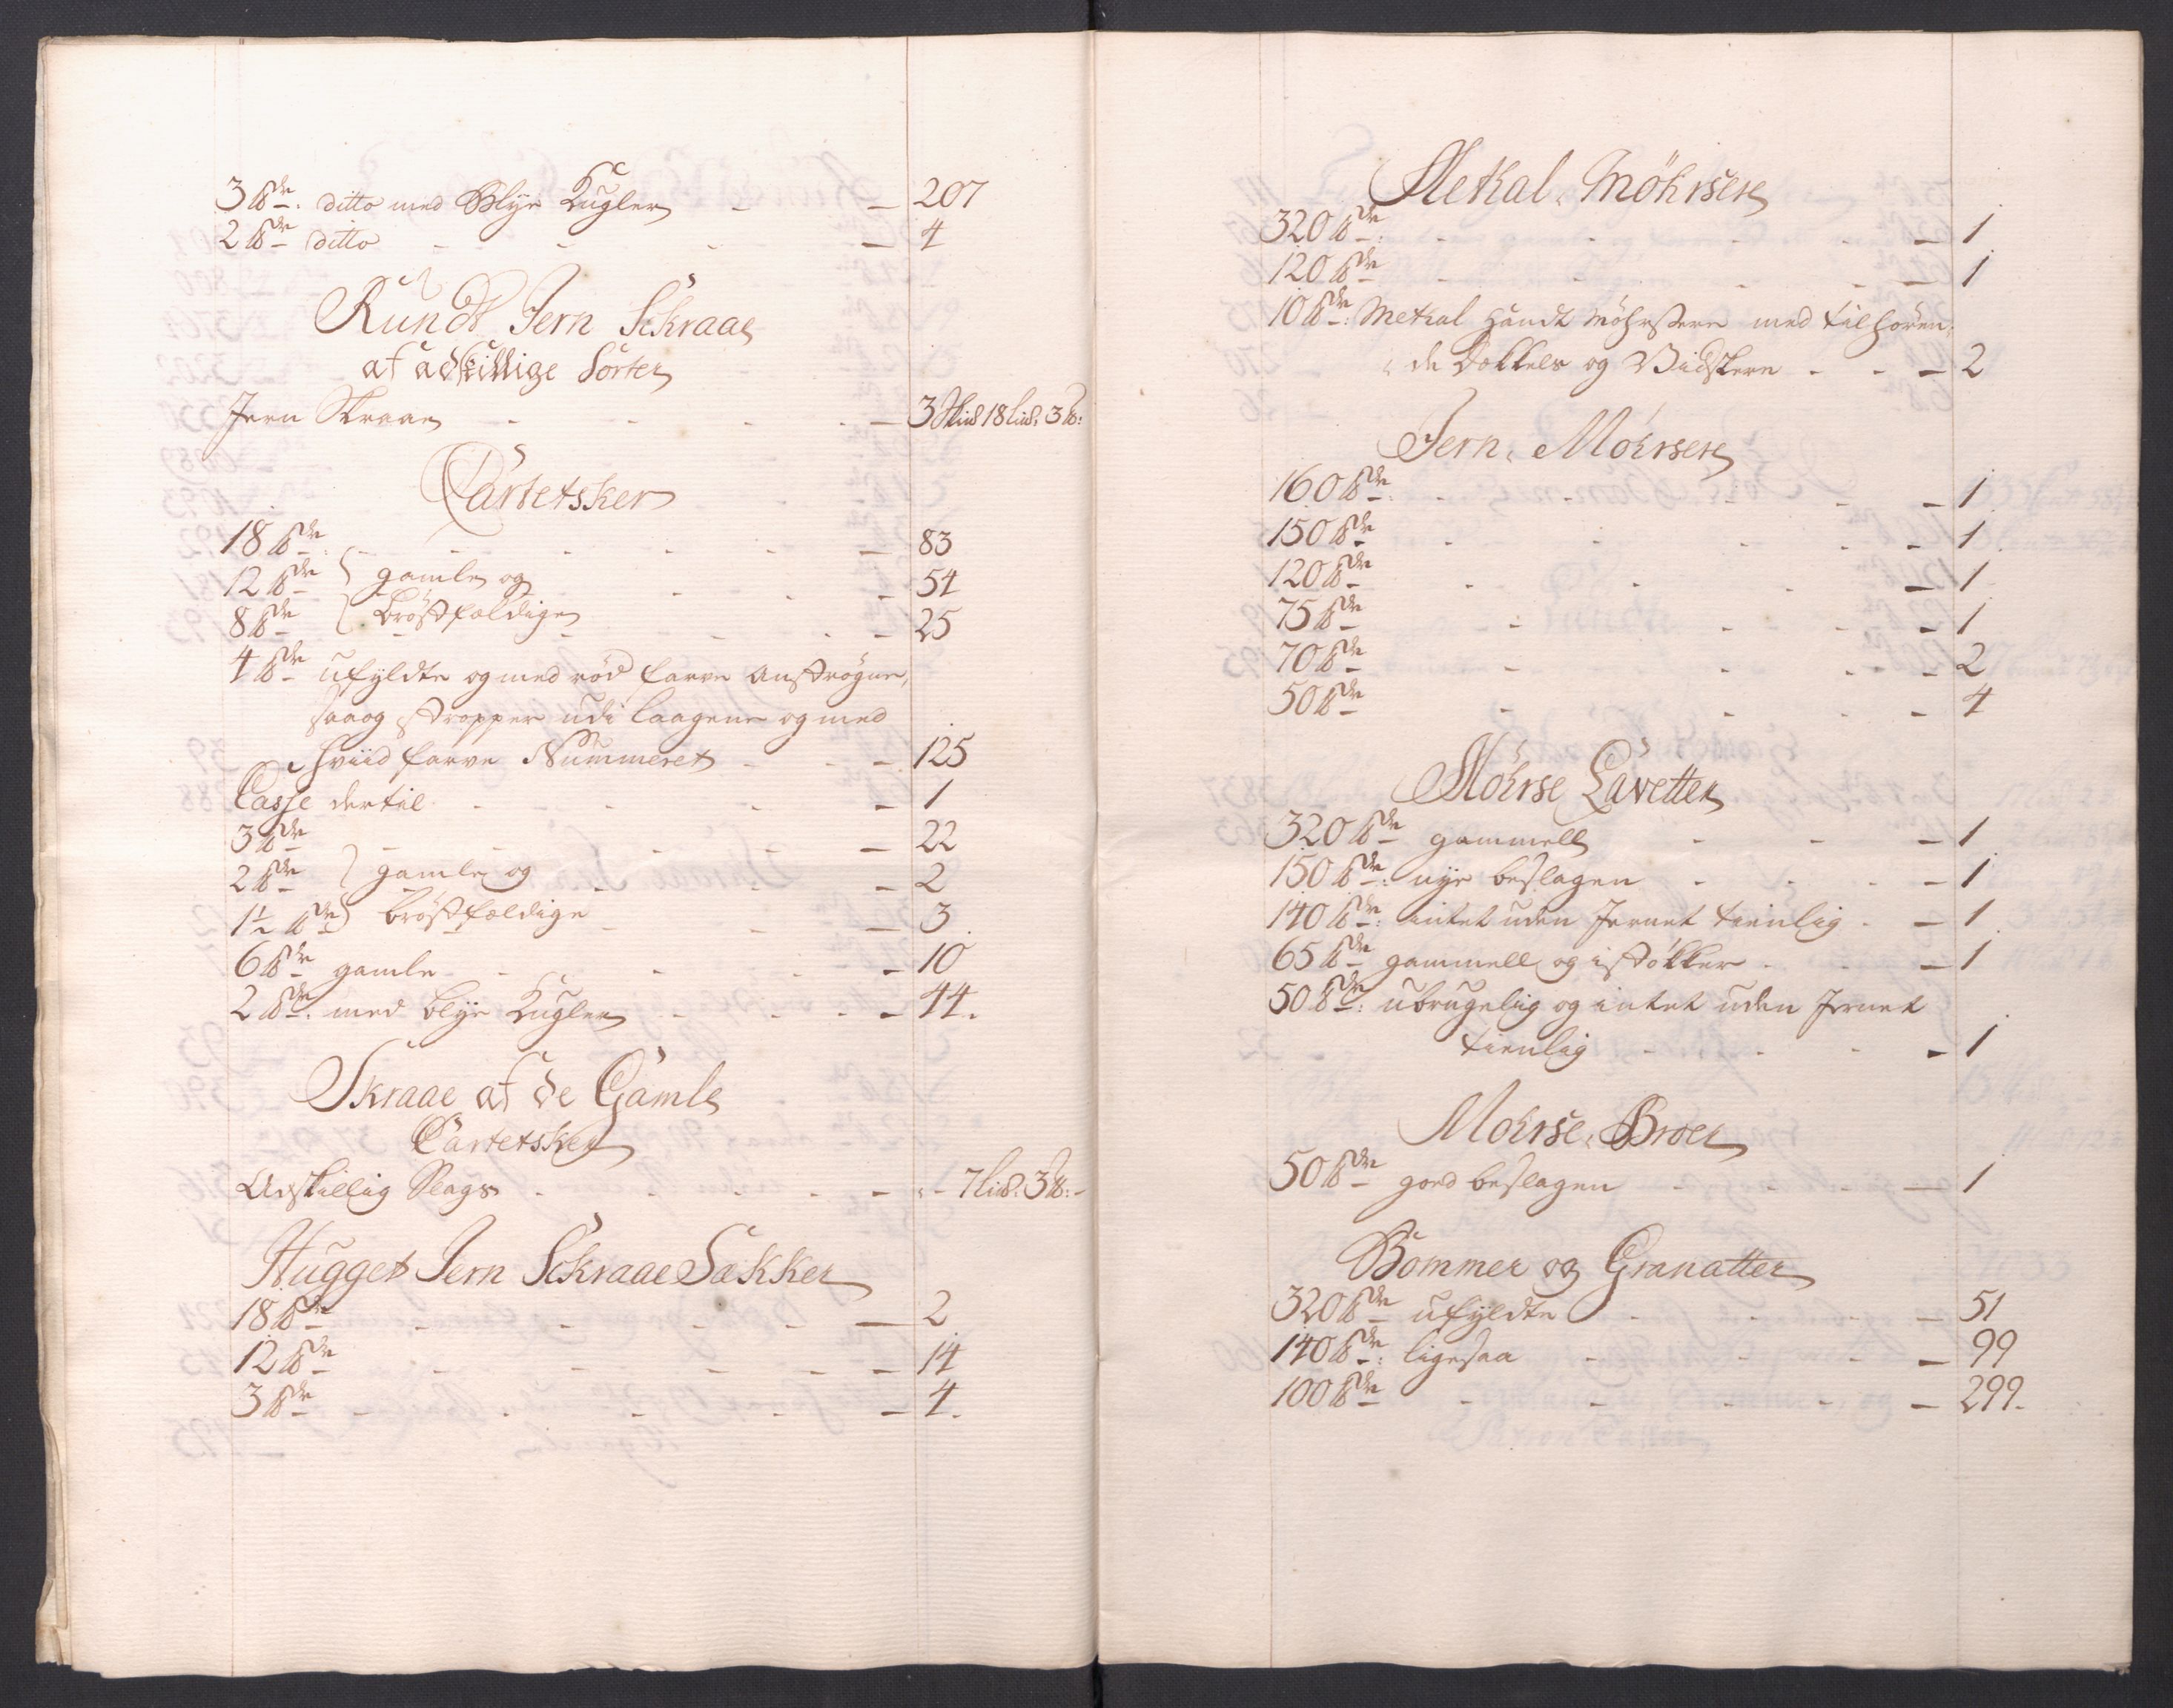 3 ℔de: ditto med Blye Kugler - - 207
2 ℔de ditto - - - - 4
Rundt Jern Schraae
af adskillige Sorter
Jern Skraae - - - - 3 Skud 18 Lisd: 3 ℔:
Cartetsker
18 ℔de: - - - - - 83
12 ℔de } gamle og - - - 54
8 ℔de } brøstfældige - - - 25
4 ℔de ufyldte og med rød farve anstrøgne,
saa og stropper udi laagene og med
hviid farve Nummeret - - - 125
Casse dertil - - - - 1
3 ℔de - - - - 22
2 ℔de } gamle og - - - 2
1½ ℔de } brøstfældige - - 3
6 ℔de gamle - - - - 10
2 ℔de: med blye Kugler - - - 44.
Skraae af de Gamle
Cartetsker
Adskillig Slags - - - - - 7 Lisd: 3 ℔: -
Hugget Jern Schraae Sækker
18 ℔de - - - - - 2
12 ℔de - - - - - 14
3 ℔de - - - - - 4.
Metal Möhrsere
320 ℔de: - - - - 1
120 ℔de - - - - 1
10 ℔de: Metal Handt Möhrsere med tilhøren-
de Dækkels og Vidskere - - - 2
Jern Möhrsere
160 ℔de: - - - - 1
150 ℔de - - - - 1
120 ℔de - - - - 1
75 ℔de - - - - 1
70 ℔de - - - - 2
50 ℔de - - - - 4
Möhrse Lavetter
320 ℔de gammell - - - 1
150 ℔de: nye beslagen - - - 1
140 ℔de: intet uden Jernet tienlig - - 1
65 ℔de gammell og i støkker - - 1
50 ℔de: ubrugelig og intet uden Jernet
tienlig - - - - 1
Mohrse Broer
50 ℔de goed beslagen - - - 1
Bommer og Granatter
320 ℔de ufyldte - - - - 51
140 ℔de: ligesaa - - - - 99
100 ℔de - - - - - 299.